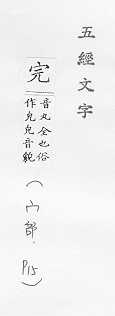 五經文字
完
音丸全也俗
作皃皃音貌
(宀部.
P15)